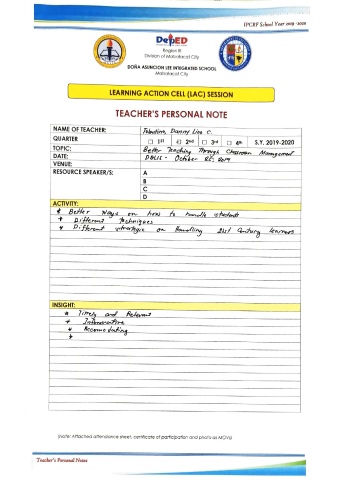 IPCRF School Year 2019-2020
DepED
Region III
Division of Mabalacat City
DOÑA ASUNCION LEE INTEGRATED SCHOOL
Mabalacat City
LEARNING ACTION CELL (LAC) SESSION
TEACHER'S PERSONAL NOTE
NAME OF TEACHER: Tolentino, Danny Lisa C.
QUARTER 1st 2nd 3rd 4th S.Y. 2019-2020
TOPIC: Better Teaching Through Classroom Management
DATE: DALIS - October 25, 2019
VENUE:
RESOURCE SPEAKER/S: A
B
C
D
ACTIVITY:
* Better Ways on how to handle students
* Different Techniques
* Different strategies on Handling 21st Century learners
INSIGHT:
* Timely and Relevant
* Innovative
* Accomodating
*
(Note: Attached attendance sheet, certificate of participation and photo as MOVs)
Teacher's Personal Notes